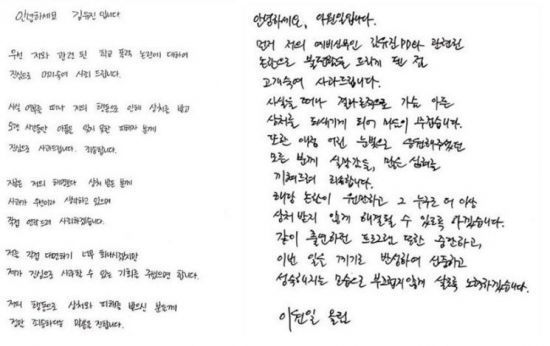 안녕하세요 김유진입니다
우선 저와 관련 된 학교 폭력 논란에 대하여
진심으로 머리숙여 사죄 드립니다.
사실 여부를 떠나 저의 행동으로 인해 상처를 받고
오랜 시간동안 아픔을 잊지 못한 피해자 분께
진심으로 사과드립니다. 죄송합니다.
지금은 저의 상처 받은 분께
사과가 우선이라 생각하고 있으며
직접 연락드려 사죄하겠습니다.
저는 직접 대면하기
제가 진심으로 사과할 수 있는 기회를 주셨으면 합니다.
저의 행동으로 상처와 피해를 받으신 분들께
다시한번 죄송하다는 마음을 전합니다.
안녕하세요, 이원일입니다.
먼저 저의 예비신부인 김유진PD와 관련된
논란으로 불편함을 드리게 된 점
고개숙여 사과드립니다.
사실을 떠나 결과론적으로 가슴 아픈
상처를 되새기게 되어 마음이 무겁습니다.
또한 애정 어린 눈빛으로 응원해주셨던
모든 분께 실망감을, 많은 심려를
끼쳐드려 죄송합니다.
해당 논란이 원만하고 그 누구도 더 이상
상처 받지 않게 해결될 수 있도록 하겠습니다.
같이 출연하던 프로그램 또한 중단하고,
이번 일을 계기로 반성하여 신중하고
성숙해지는 모습으로 부끄럽지않게 살도록 노력하겠습니다.
이원일 올림